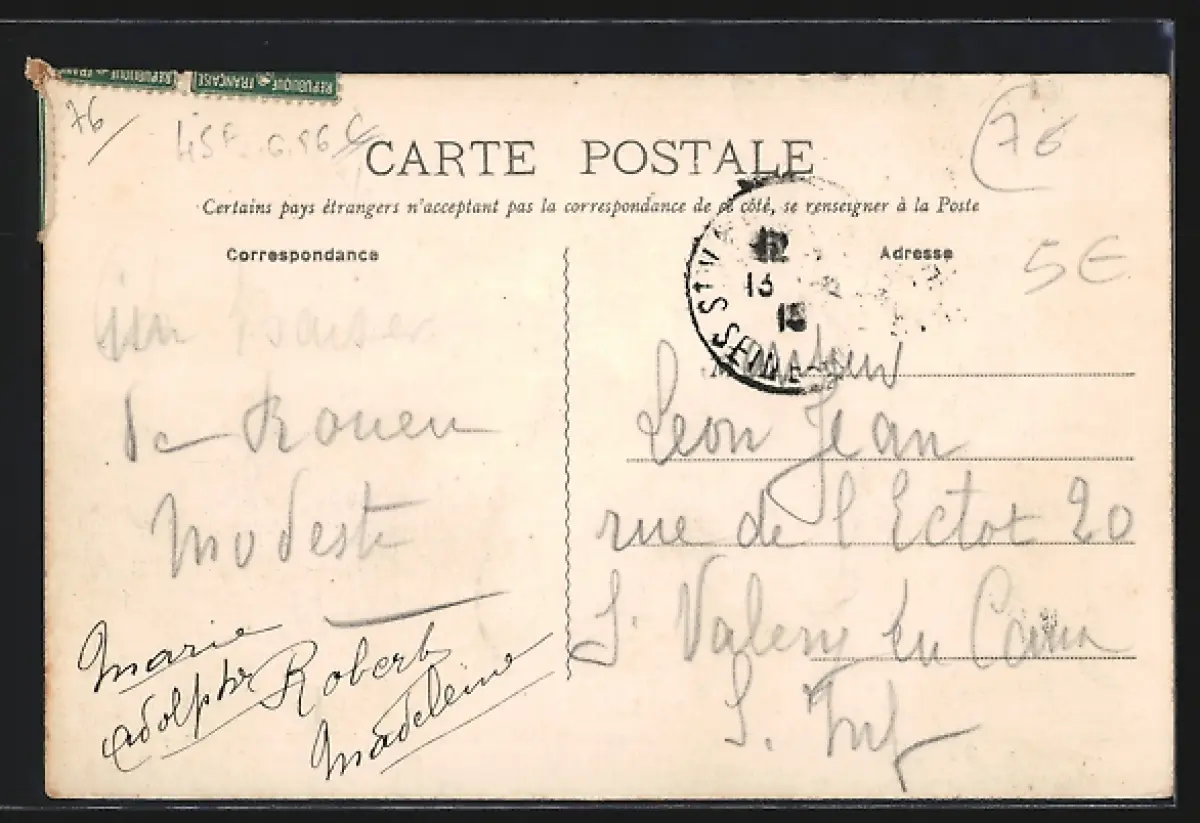 REPUBLIQUE FRANÇAISE
REPUBLIQUE FRAN
76
7€
CARTE POSTALE
Certains pays étrangers n'acceptant pas la correspondance de ce côté, se renseigner à la Poste
Correspondance
Adresse
5€
ST VA
12
13
SEINE
baiser
de Rouen
Modeste
Marie
Adolphe Robert
Madeleine
Monsieur
Leon Jean
rue de l Ectot 20
S. Valery en Caux
S. Inf